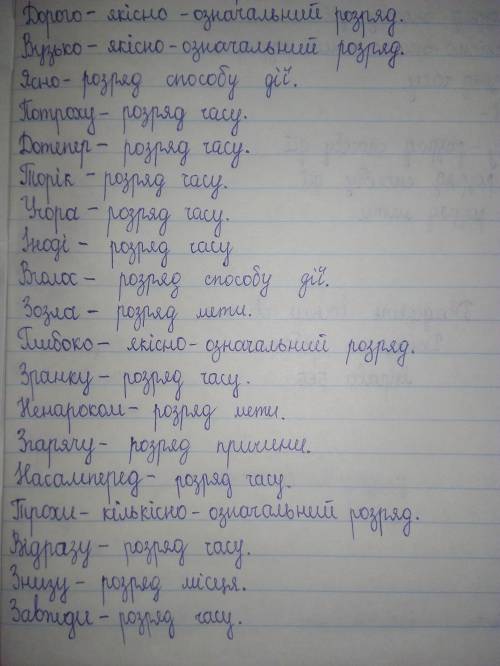 Дорого - якісно - означальний розряд.
Вузько - якісно - означальний розряд.
Ясно - розряд способу дії.
Потроху - розряд часу.
Дотепер - розряд часу.
Торік - розряд часу.
Учора - розряд часу.
Іноді - розряд часу
Вголос - розряд способу дії.
Зозла - розряд мети.
Глибоко - якісно - означальний розряд.
Зранку - розряд часу.
Ненароком - розряд мети.
Згарячу - розряд причини.
Насамперед - розряд часу.
Трохи - кількісно - означальний розряд.
Відразу - розряд часу.
Знизу - розряд місця.
Завжди - розряд часу.